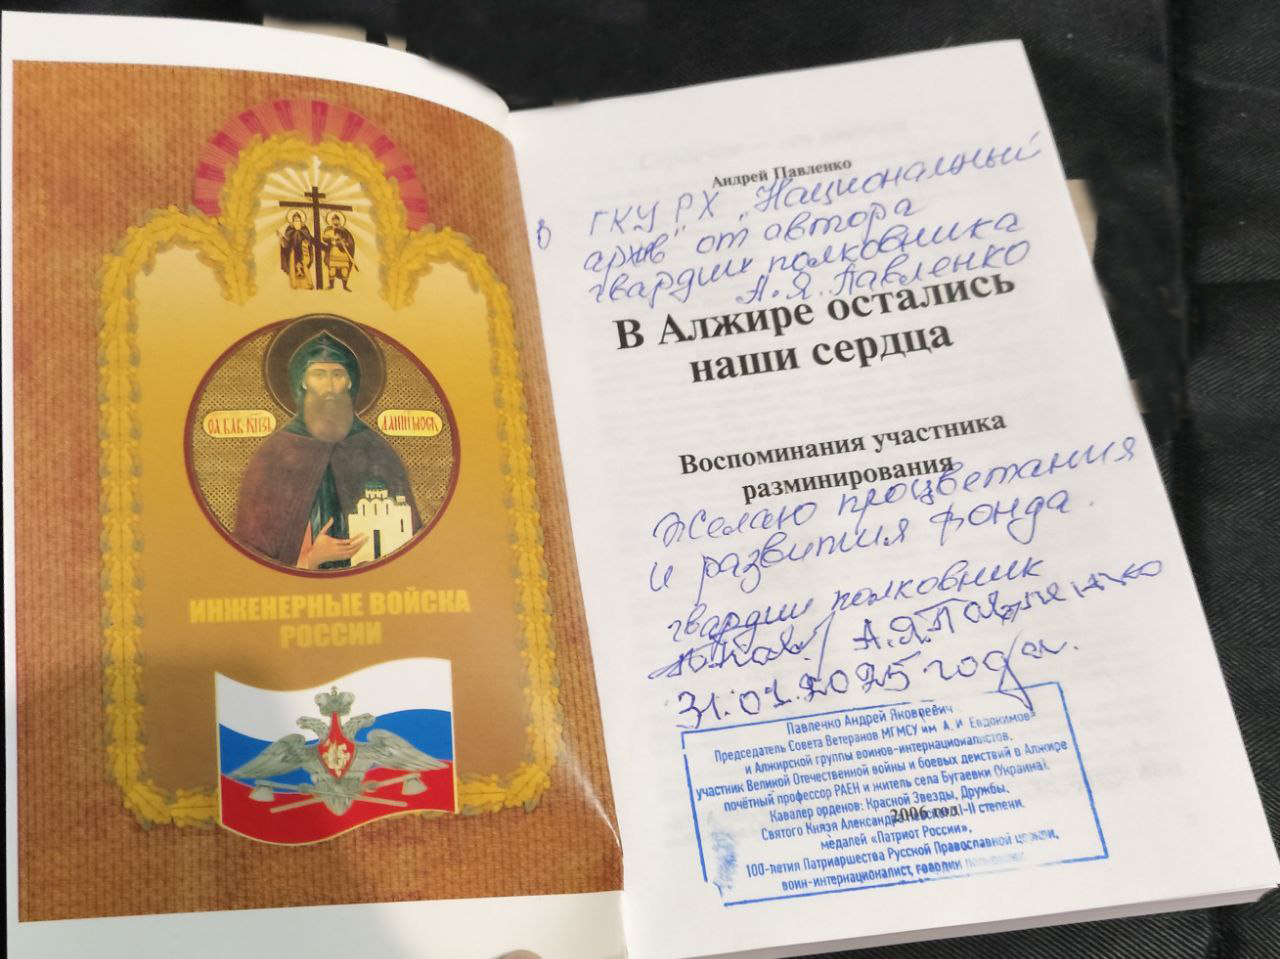 ОА БЛВ КНЗЬ
ДАНІИЛ МОСК
ИНЖЕНЕРНЫЕ ВОЙСКА
РОССИИ
Андрей Павленко
В ГКУ РХ "Национальный
архив" от автора
гвардии полковника
А.Я. Павленко
В Алжире остались
наши сердца
Воспоминания участника
разминирования
Желаю процветания
и развития фонда.
гвардии полковник
А.Я. Павленко
2025 года.
Павленко Андрей Яковлевич
Председатель Совета Ветеранов МГМСУ им А. И Евдокимова
и Алжирской группы воинов-интернационалистов,
участник Великой Отечественной войны и боевых действий в Алжире
почётный профессор РАЕН и житель села Бугаевки (Украина).
Кавалер орденов: Красной Звезды, Дружбы,
Святого Князя Александра I-II степени.
2006 год
медалей «Патриот России»,
100-летия Патриаршества Русской Православной церкви,
воин-интернационалист, гвардии